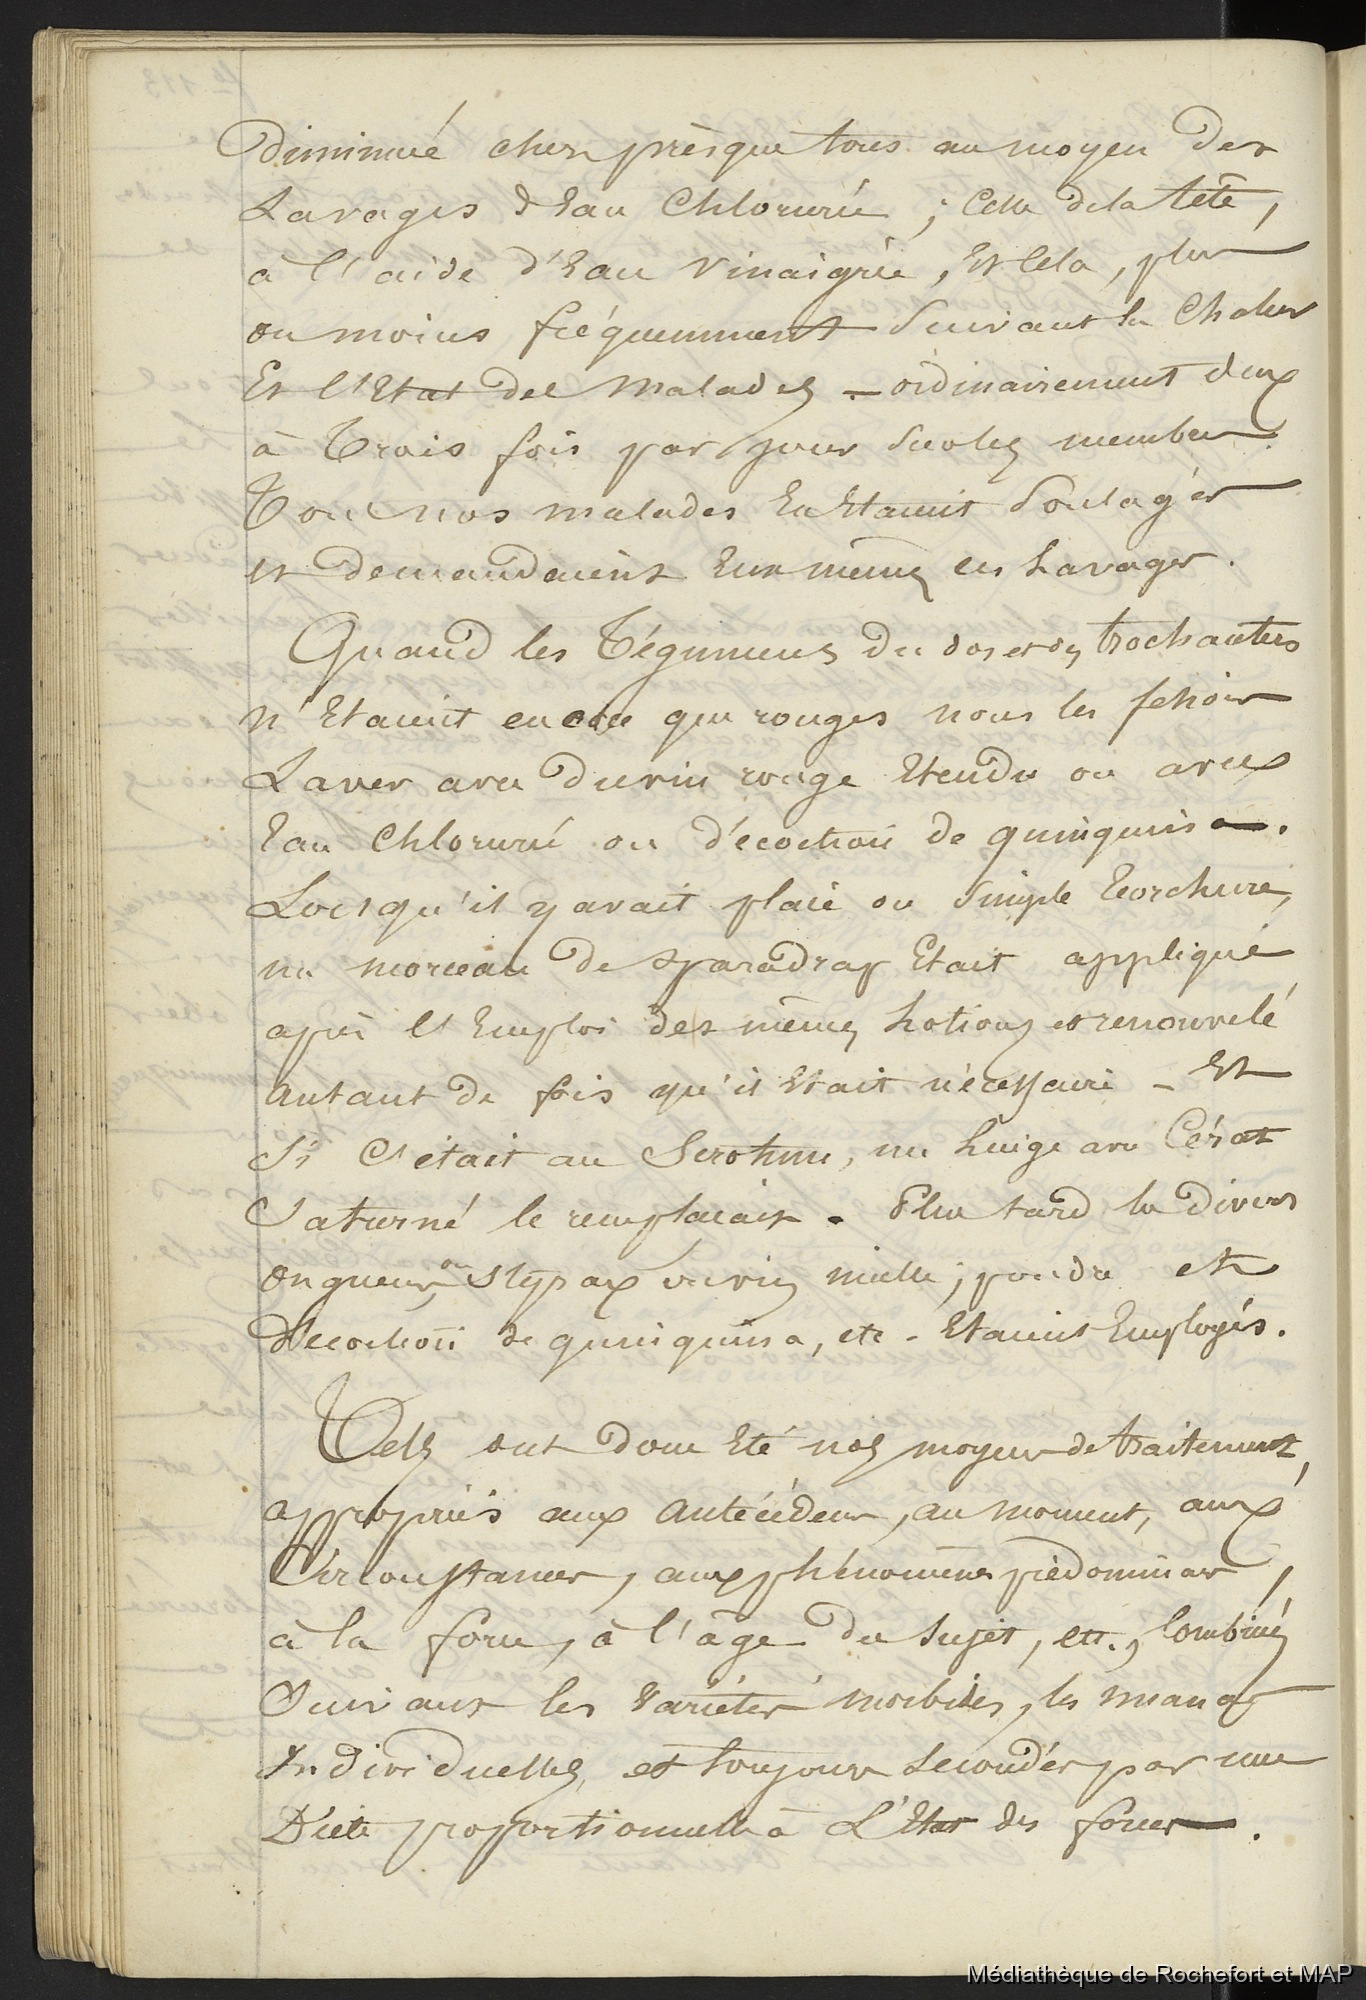 diminuée chez presque tous au moyen des
Lavages d'Eau Chlorurée ; Celle de la tête,
à l'aide d'Eau Vinaigrée, Et Cela, plus
ou moins fréquemment Suivant la Chaleur
Et l'Etat des Malades — ordinairement deux
à Trois fois par jour Sur les membres.
Tous nos malades En Etaient Soulagés
et demandaient Eux mêmes ces Lavages.
Quand les Tégumens du dos et des trochanters
n'Etaient encore que rouges nous les fesions
Laver avec du vin rouge Etendu ou avec
Eau Chlorurée ou décoction de quinquina —.
Lorsqu'il y avait plaie ou Simple Ecorchure,
un morceau de Sparadrap Etait appliqué
après l'Emploi des mêmes Lotions et renouvelé
Autant de fois qu'il Etait nécessaire — Et
Si C'était au Scrotum, un Linge avec Cérat
Saturné le remplaçait. Plus tard les divers
onguens, ou Stypax miellé ; poudre et
décoction de quinquina, etc — Etaient Employés.
Tels ont donc Eté nos moyens de traitement,
appropriés aux Antécédens, au moment, aux
Circonstances, aux phénomènes prédominans,
à la force, à l'âge du Sujet, etc., Combinés
Suivant les Variétés morbides, les nuances
Individuelles, et toujours Secondés par une
Diète proportionnelle à L'Etat des forces —.
Médiathèque de Rochefort et MAP